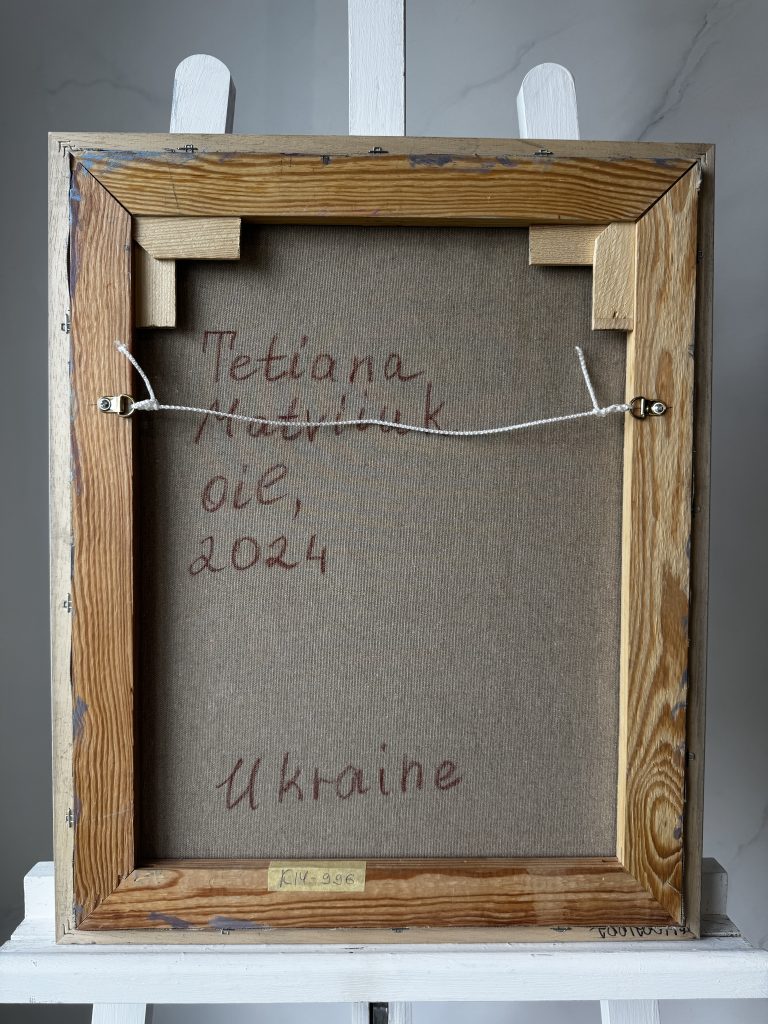 Tetiana
Matviiuk
oie,
2024
Ukraine
K14-996